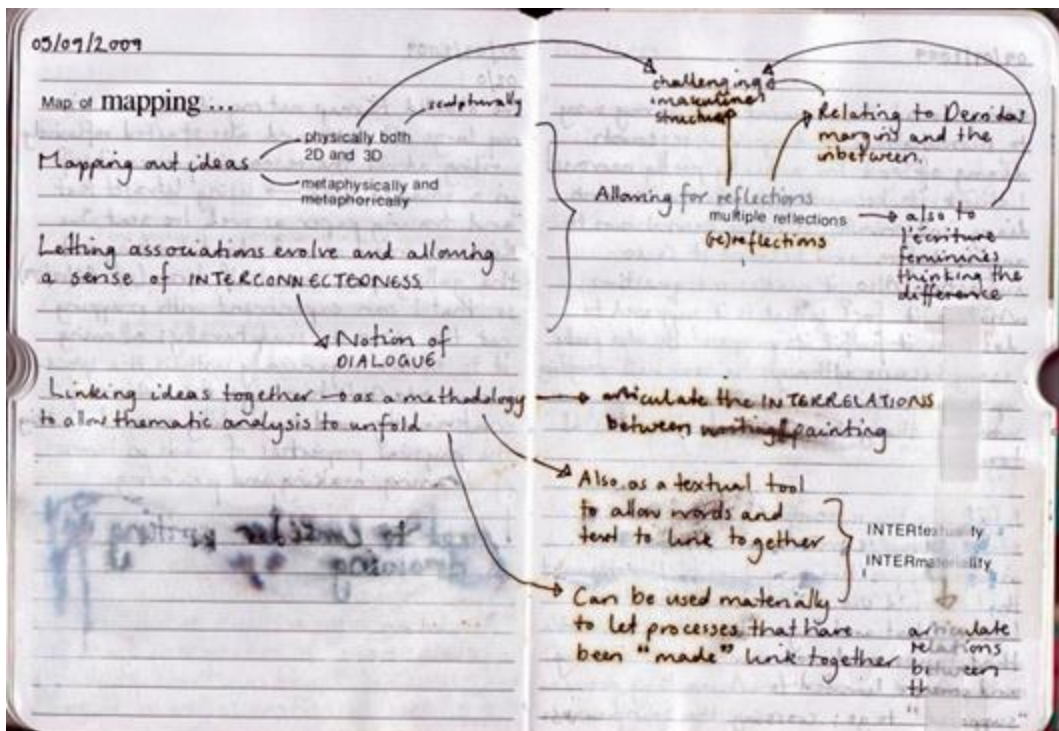 05/09/2009
Map of mapping ...
sculpturally
physically both
2D and 3D
Mapping out ideas
metaphysically and
metaphorically
Letting associations evolve and allowing
a sense of INTERCONNECTEDNESS
Notion of
DIALOGUE
Linking ideas together → as a methodology
to allow thematic analysis to unfold
challenging
masculine
structure
Relating to Derridas
margins and the
inbetween.
Allowing for reflections
multiple reflections
(re)reflections
also to
l'écriture
feminines
thinking the
difference
articulate the INTERRELATIONS
between writing painting
Also as a textual tool
to allow words and
text to link together
INTERtextuality
INTERmateriality
Can be used materially
to let processes that have
been "made" link together
articulate
relations
between
them